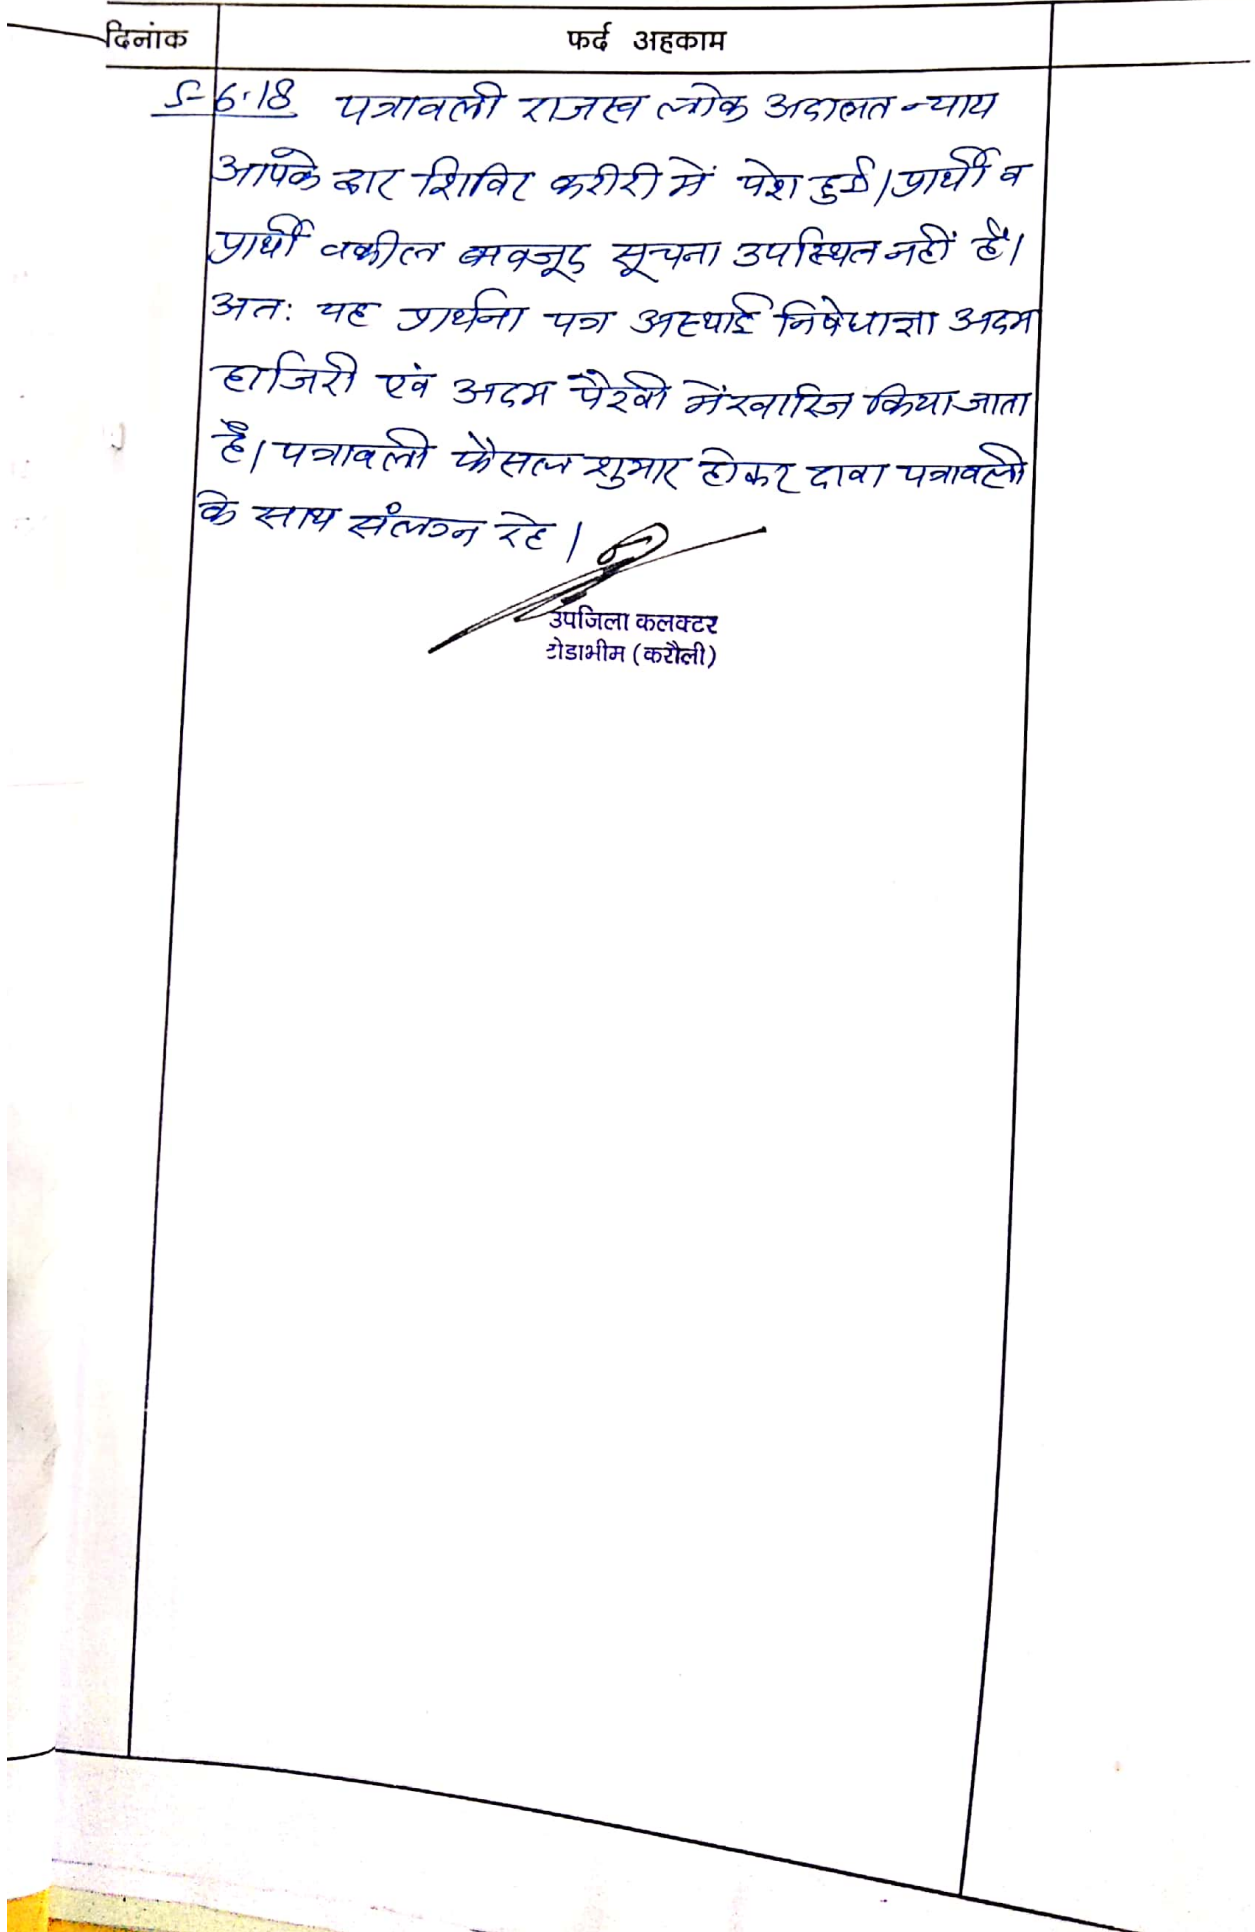 दिनांक फर्द अहकाम
5-6-18 पत्रावली राजस्व लोक अदालत न्याय
आपके द्वार शिविर करीरी में पेश हुई। प्रार्थी व
प्रार्थी वकील बावजूद सूचना उपस्थित नहीं है।
अतः यह प्रार्थना पत्र अस्थाई निषेधाज्ञा अदम
हाजिरी एवं अदम पैरवी में खारिज किया जाता
है। पत्रावली फैसल शुमार होकर दावा पत्रावली
के साथ संलग्न रहे।
उपजिला कलक्टर
टोडाभीम (करौली)